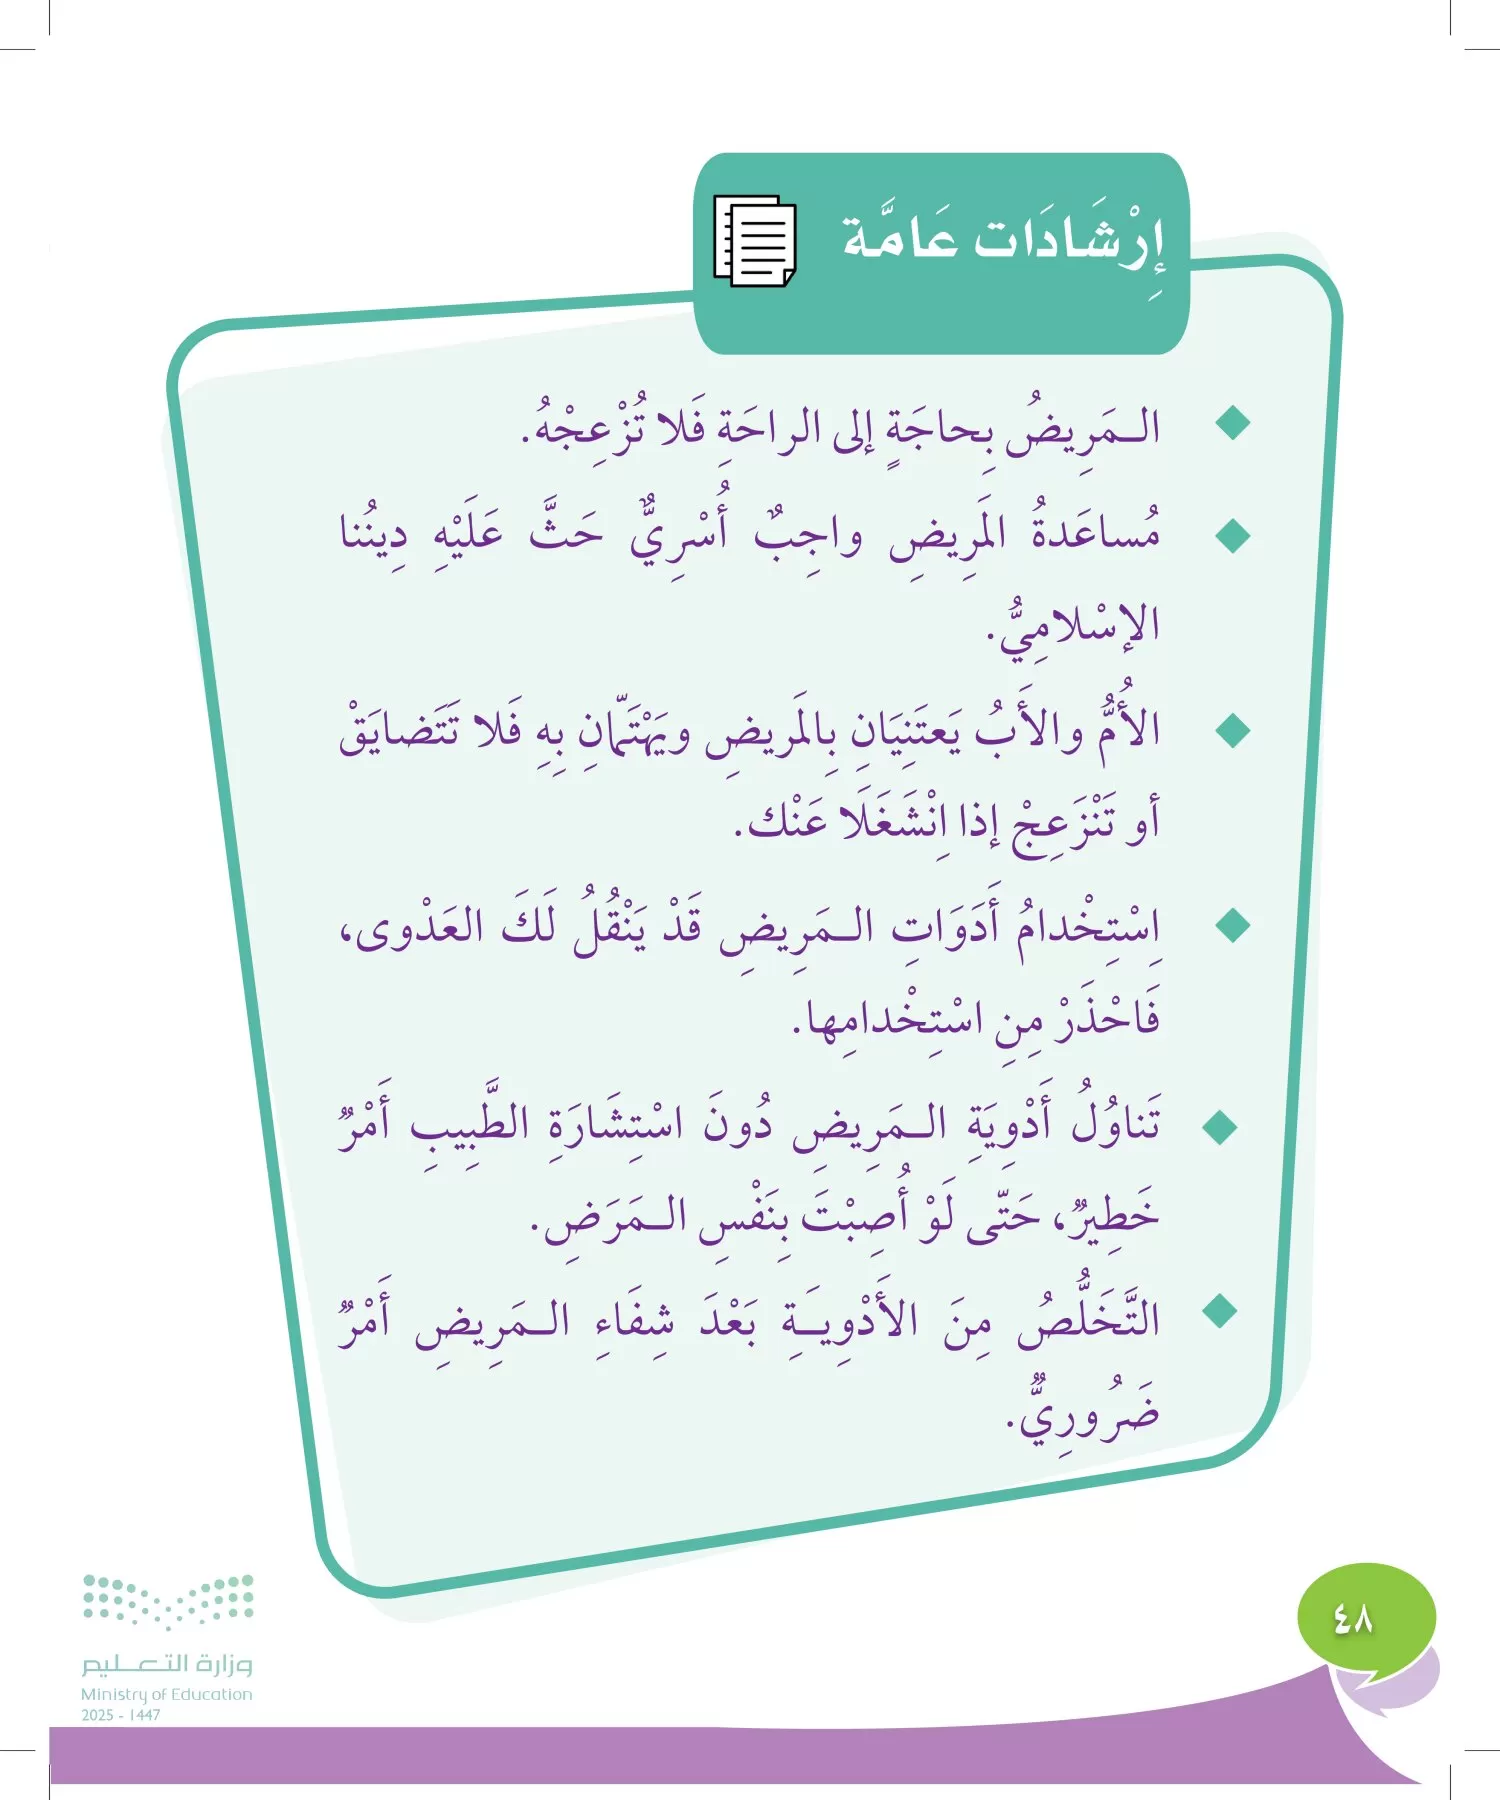 إِرْشَادَات عَامَّة
الـمَرِيضُ بِحاجَةٍ إلى الراحَةِ فَلا تُزْعِجْهُ.
مُساعَدةُ المَرِيضِ واجِبٌ أُسْرِيٌّ حَثَّ عَلَيْهِ دِينُنا
الإسْلامِيُّ.
الأُمُّ والأَبُ يَعتَنِيَانِ بِالمَريضِ ويَهْتَمّانِ بِهِ فَلا تَتَضايَقْ
أو تَنْزَعِجْ إذا اِنْشَغَلَا عَنْك.
اِسْتِخْدامُ أَدَوَاتِ الـمَرِيضِ قَدْ يَنْقُلُ لَكَ العَدْوى،
فَاحْذَرْ مِنِ اسْتِخْدامِها.
تَناوُلُ أَدْوِيَةِ الـمَرِيضِ دُونَ اسْتِشَارَةِ الطَّبِيبِ أَمْرٌ
خَطِيرٌ، حَتّى لَوْ أُصِبْتَ بِنَفْسِ الـمَرَضِ.
التَّخَلُّصُ مِنَ الأَدْوِيَـةِ بَعْدَ شِفَاءِ الـمَرِيضِ أَمْرٌ
ضَرُورِيٌّ.
٤٨
وزارة التـعـــليم
Ministry of Education
2025 - 1447